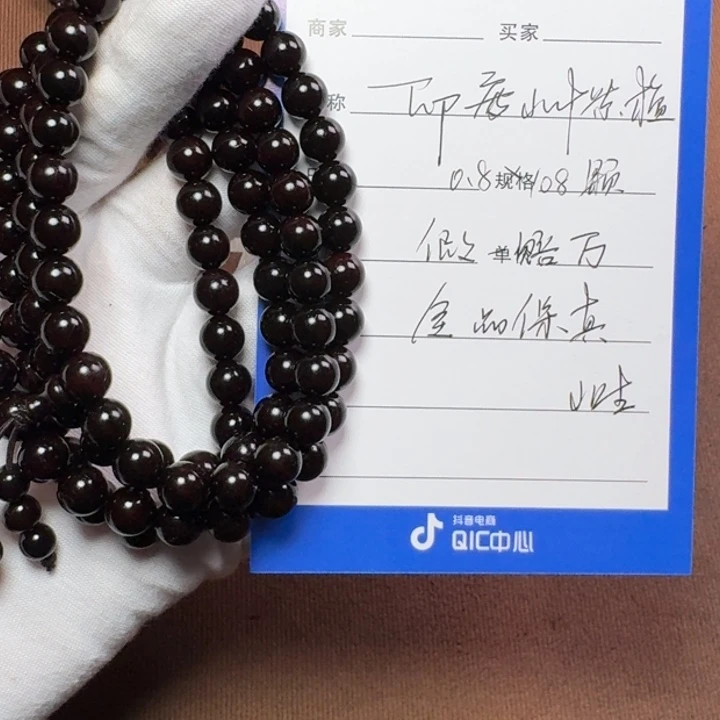 商家 买家
称 印度小叶紫檀
0.8 规格 108 颗
假一单赔万
全品保真
抖音电商
QIC中心